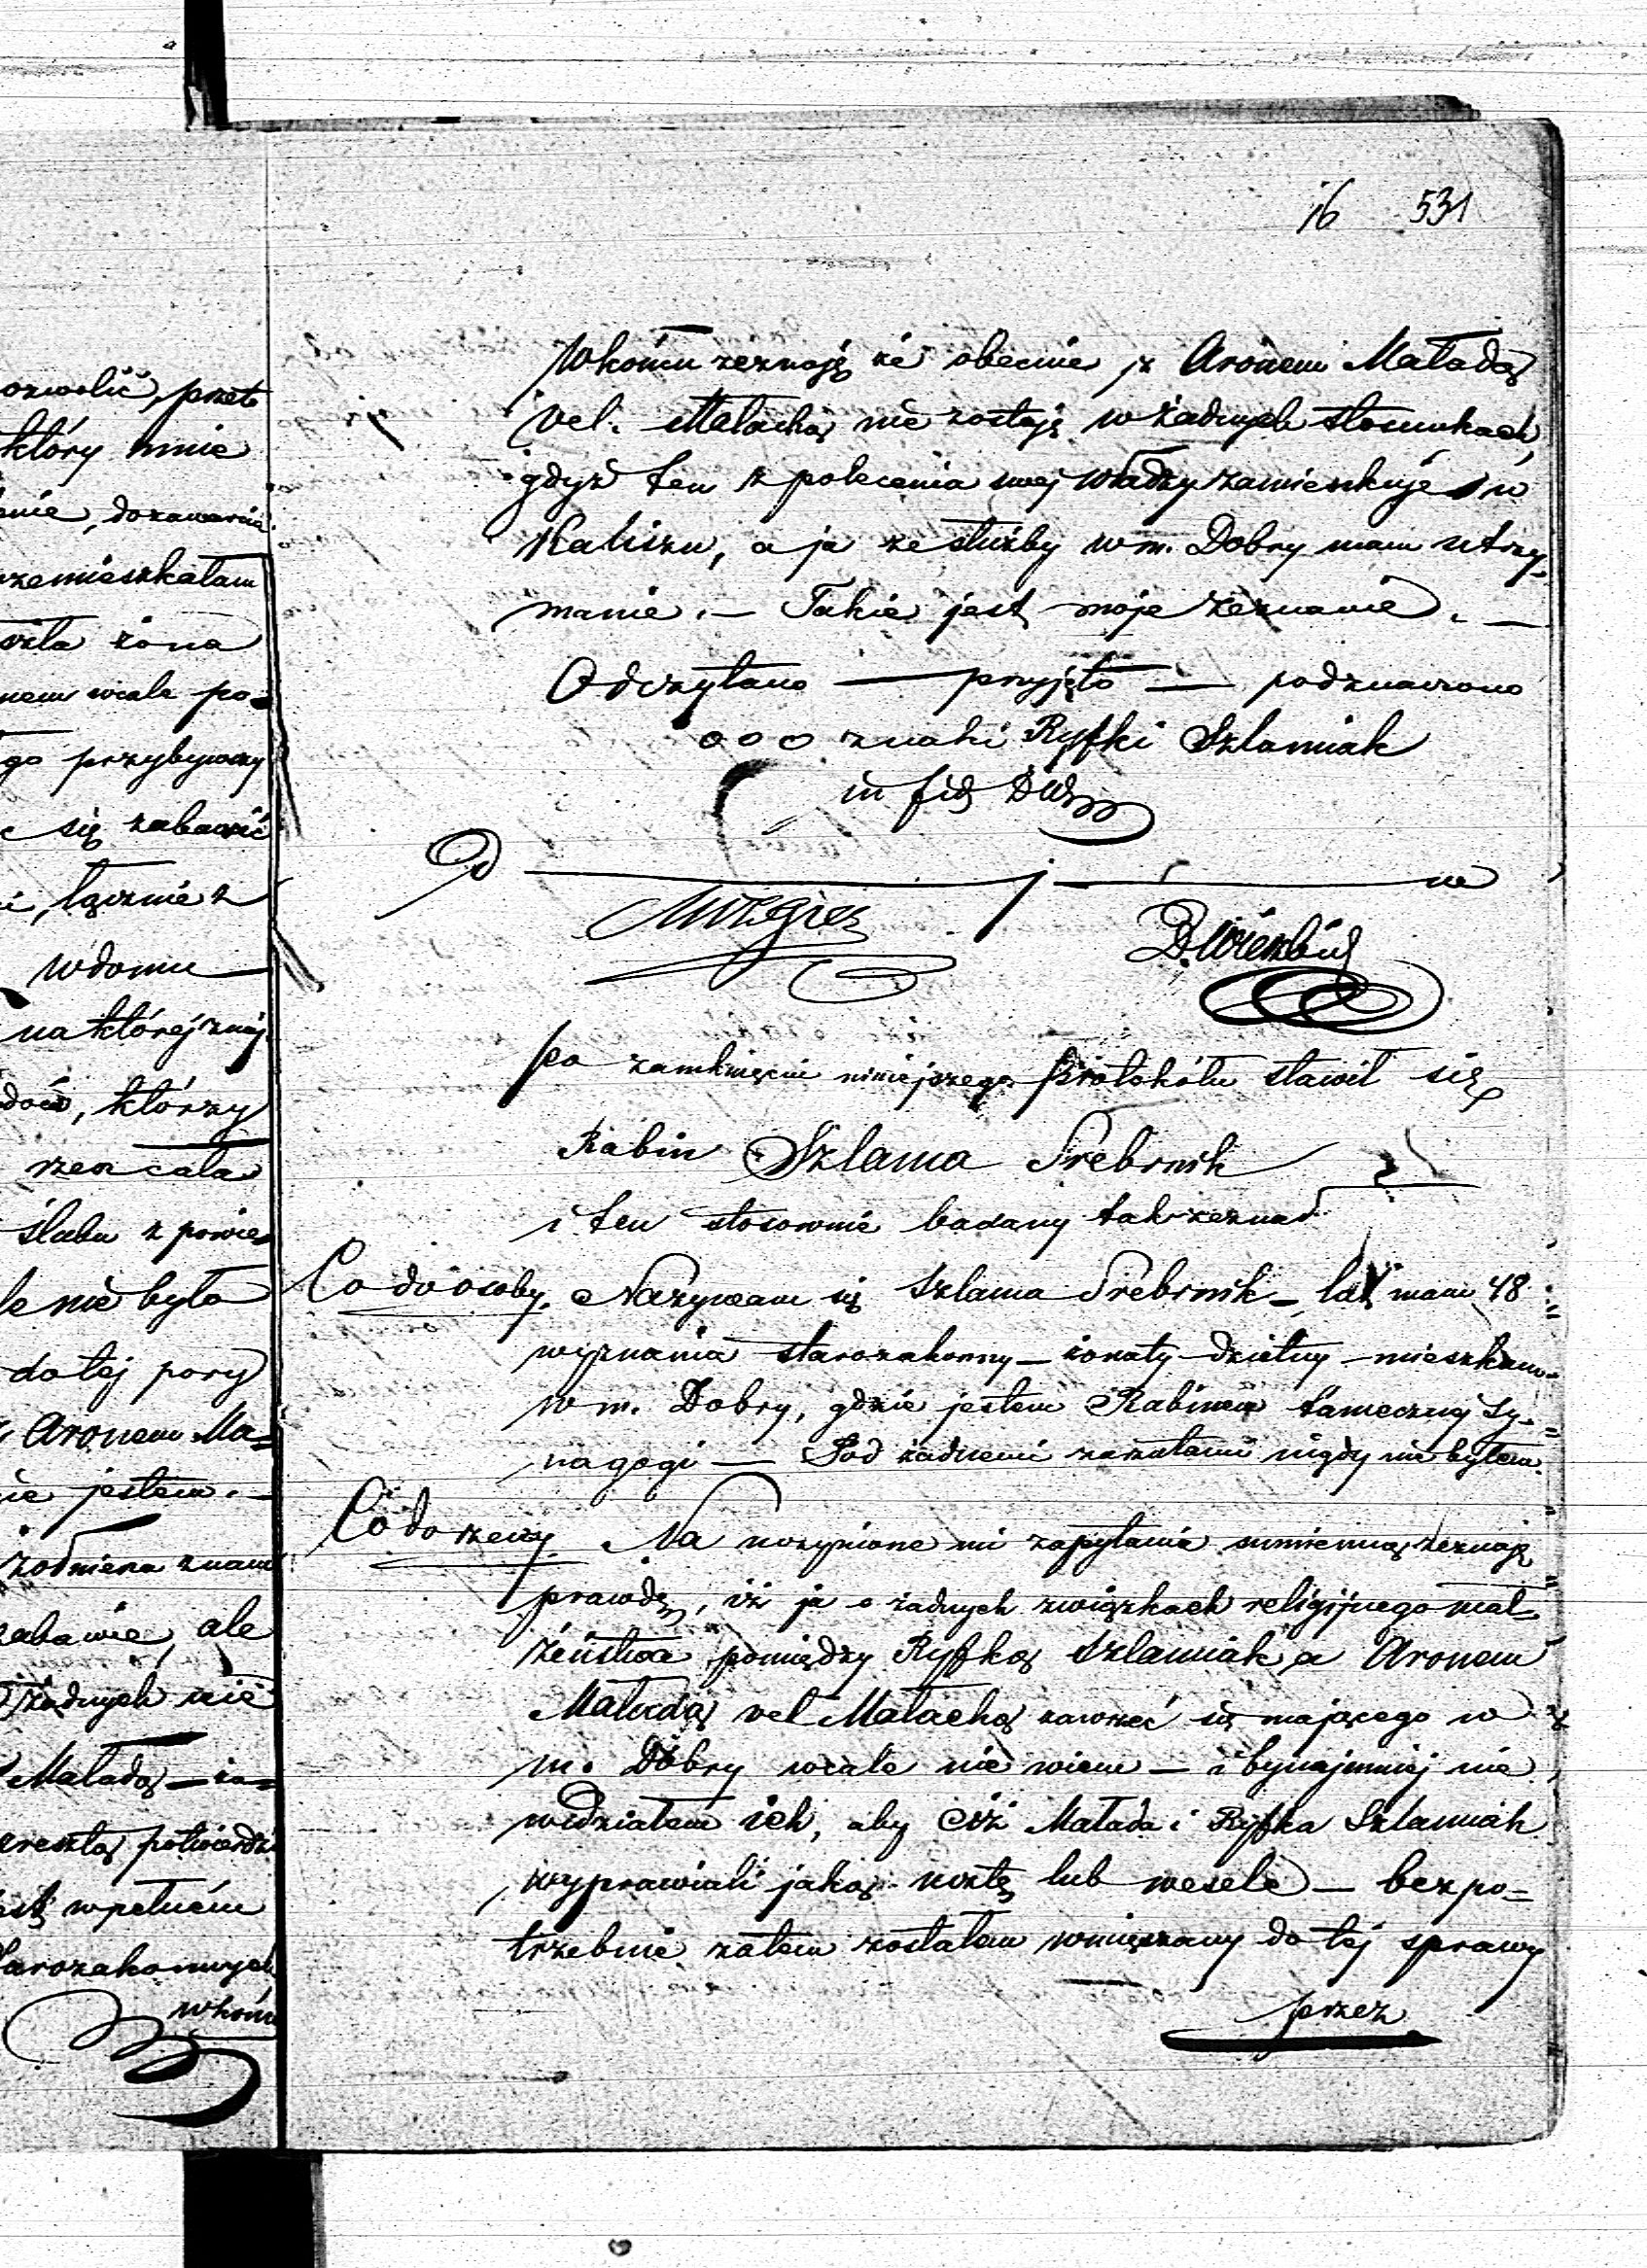 16 531
ozwolić, przeto
który mnie
enie, dozawarcia
zemieszkałam
szła żona
nem wcale po-
go przybywszy
się zabawić
i, łącznie z
w domu
na której znaj-
dów, którzy
rzen cała
ślubu z powie-
le nie było
do tej pory
Aronem Ma-
ie jestem. —
żołnierza znam
zabawie, ale
żadnych nie
Maładą — za-
zresztą potwierdzi
w pełném
Starozakonnych
wkońcu
Wkońcu zeznaję że obecnie z Aronem Maładą
vel. Małachą nie zostaję w żadnych stosunkach,
gdyż ten z polecenia swej władzy zamieszkuje w
Kaliszu, a ja ze służby w m. Dobry mam utrzy-
manie. — Takie jest moje zeznanie. —
Odczytano — przyjęto — podznaczono
o o o znaki Ryfki Szlamiak
in fid
D — j — ne
po zamknięciu niniejszego protokółu stawił się
Rabin Szlama Srebrnik
i ten stosownie badany tak zeznał
Co do osoby. Nazywam się Szlama Srebrnik — lat mam 48
wyznania starozakonny — żonaty — dzietny — mieszkam
w m. Dobry, gdzie jestem Rabinem tameczney Sy-
nagogi — Pod żadnemi zarzutami nigdy nie byłem.
Co do rzeczy. Na uczynione mi zapytania sumienną zeznaję
prawdę, iż ja o żadnych związkach religijnego mał-
żeństwa pomiędzy Ryfką Szlamiak a Aronem
Maładą vel Małachą zawrzeć się mającego w
m. Dobry wcale nie wiem — i bynajmniej nie
widziałem ich, aby ciż Małada i Ryfka Szlamiak
wyprawiali jaką ucztę lub wesele — bezpo-
trzebnie zatem zostałem wmięszany do tej sprawy
przez